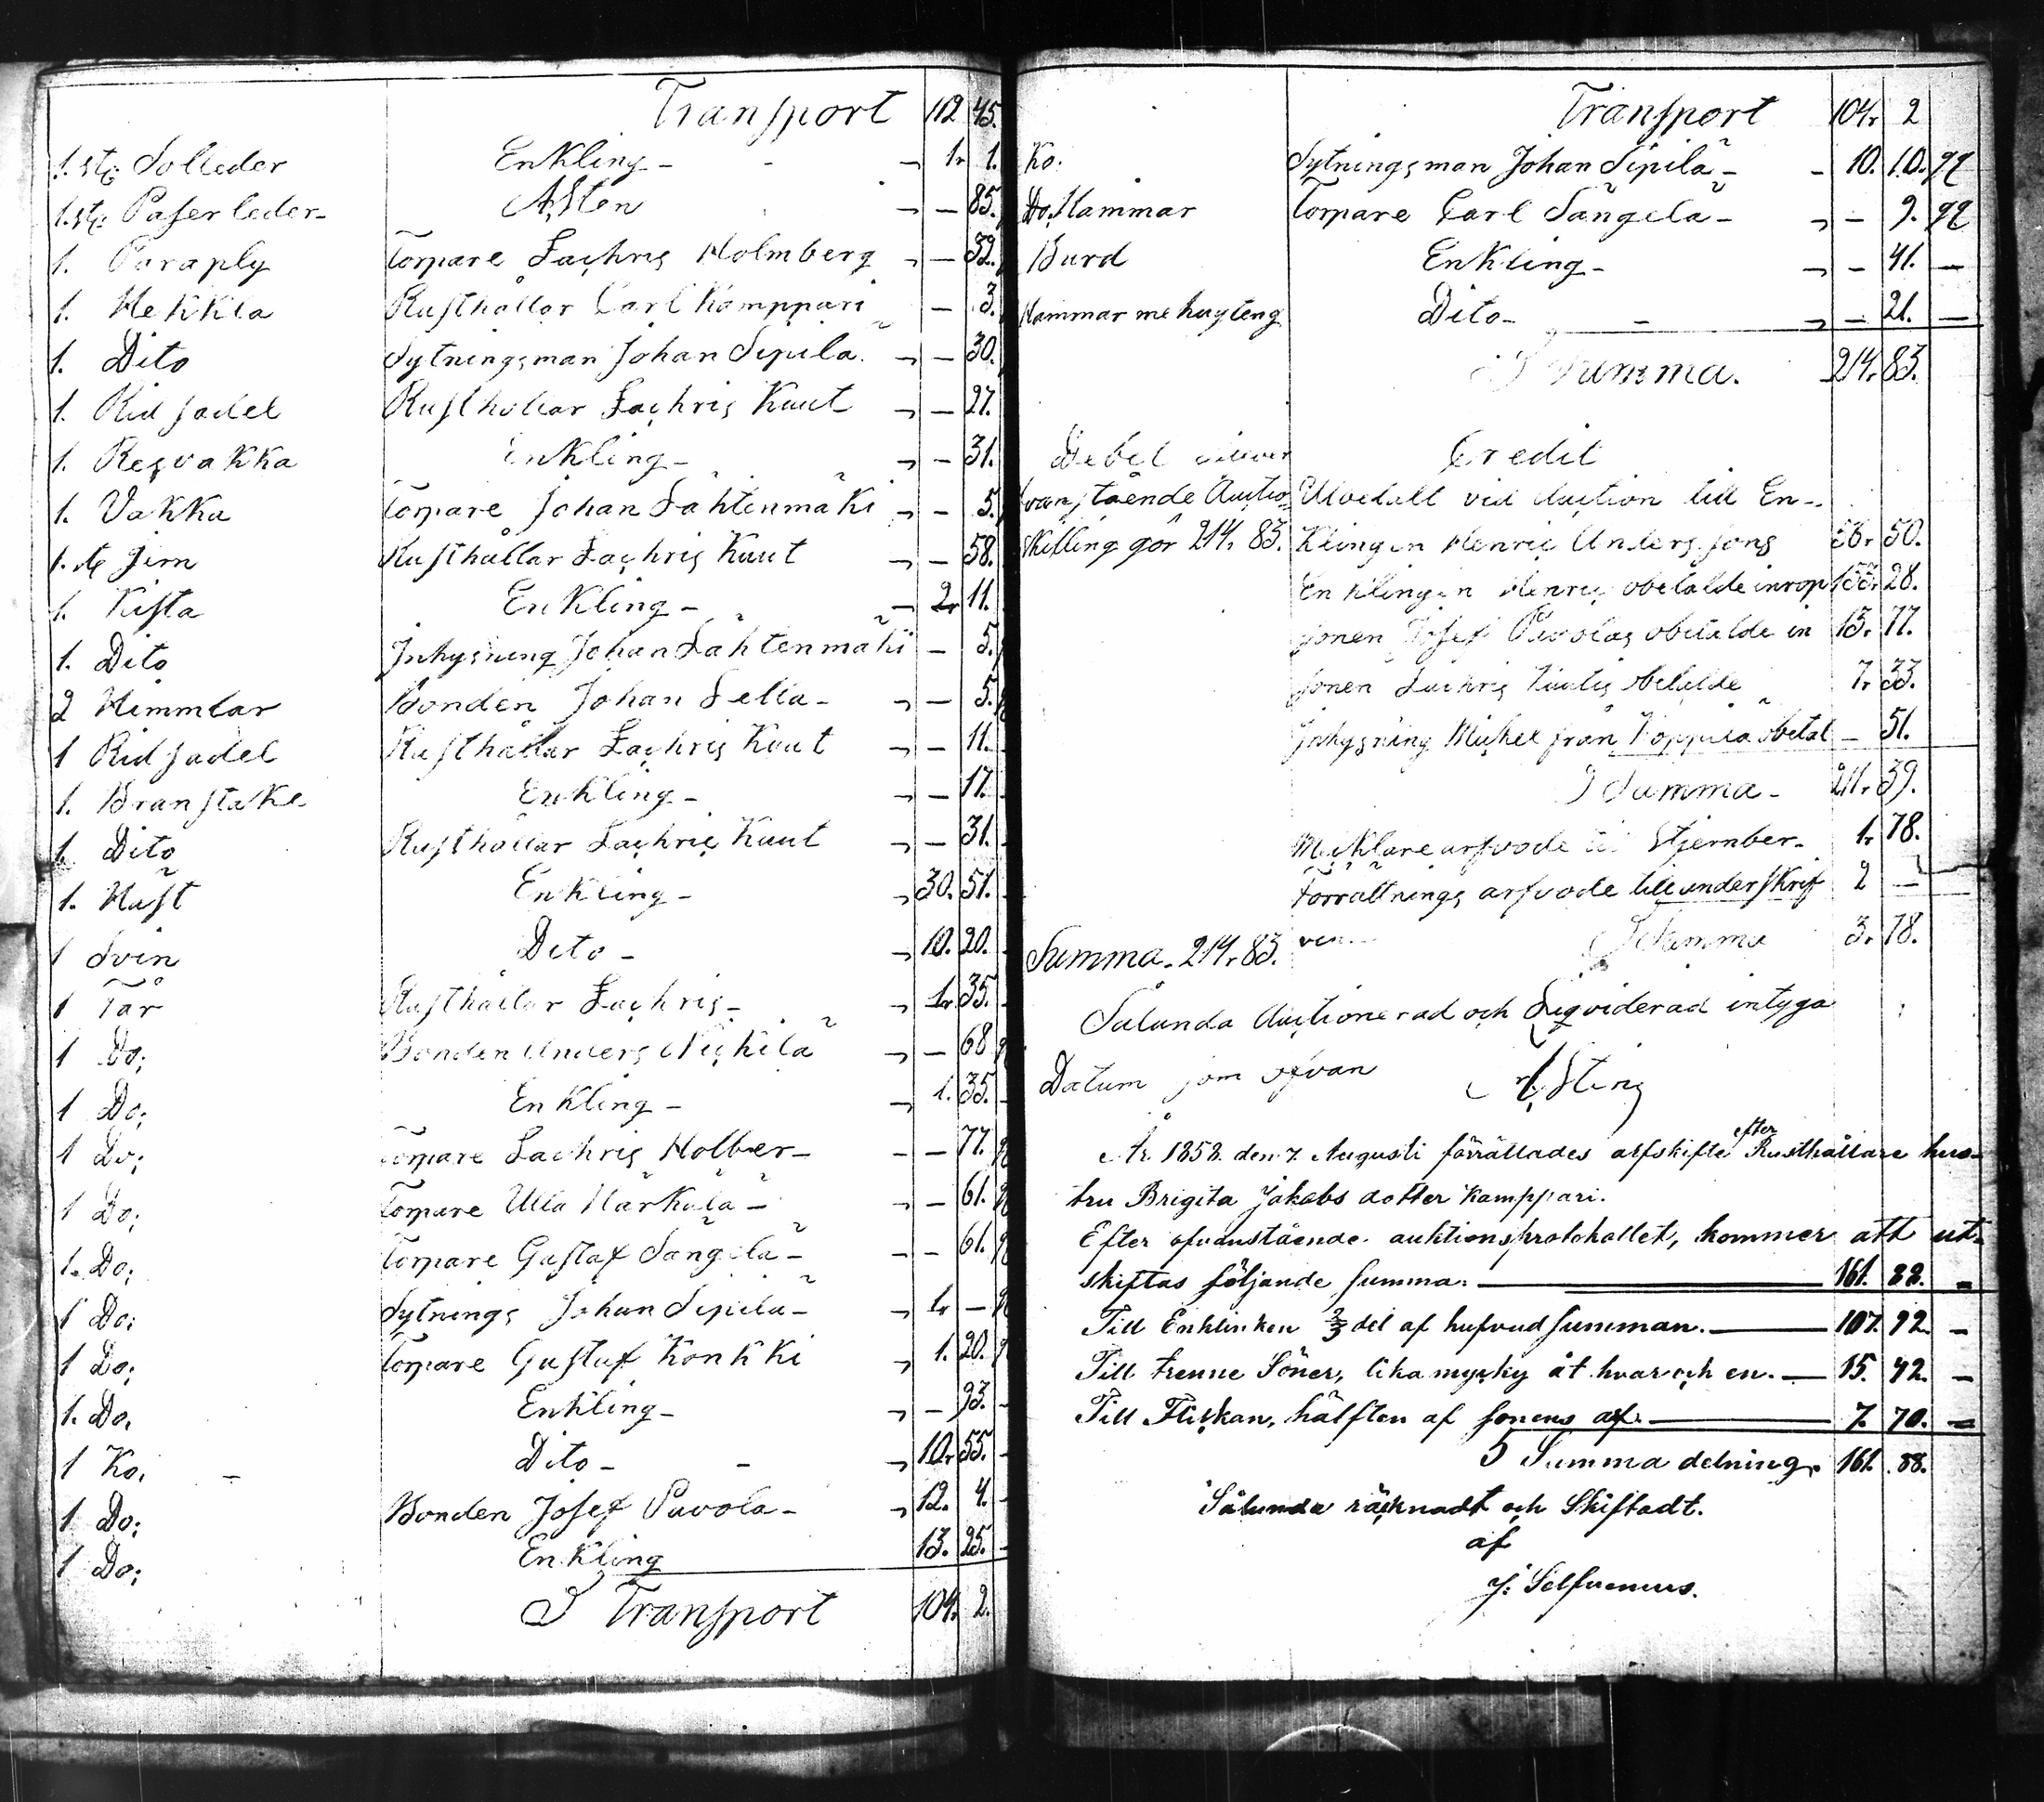 Transport 112 45.
1. st; Solleder Enkling - 1r 1.
1. st; Paserleder - ASten - 85.
1. Paraply Torpare Zachris Holmberg - 32.
1. Hekkla Rusthållar Carl Kamppari - 3.
1. Dito Sytningsman Johan Sipilä. - 30.
1. Rid sadel Rusthållar Zachris Kuut - 27.
1. Resvakka Enkling - - 31.
1. Vakka Torpare Johan Lähtenmäki - 5.
1. Jern Rusthållar Zachris Kuut - 58.
1. Kista Enkling - 2r 11.
1. Dito Inhysning Johan Lähtenmäki - 5.
2 Himmlar Bonden Johan Lella - - 5.
1 Rid sadel Rusthållar Zachris Kuut - 11.
1. Branstake Enkling - - 17.
1. Dito Rusthållar Zachris Kuut - 31.
1. Häst Enkling - 30. 51.
1 Svin Dito - 10. 20.
1 Får Rusthållar Zachris - 1r 35.
1 Do; Bonden Anders Nickilä - 68
1 Do; Enkling - 1. 35.
1 Do; Torpare Zachris Holber - - 77.
1 Do; Torpare Ulla Härkälä - - 61.
1. Do; Torpare Gustaf Sängilä - - 61.
1 Do; Sytnings Johan Sipilä - 1r -
1 Do; Torpare Gustaf Konkki 1. 20.
1. Do, Enkling - - 93.
1 Ko. - Dito - - 10r 55.
1 Do; Bonden Josef Pavola - 12. 4.
1 Do; Enkling 13. 25.
S Transport 104. 2.
Transport 104r 2
Ko. Sytningsman Johan Sipilä - - 10. 10. qq
Do. Hammar Torpare Carl Sängilä - - 9. qq
Burd Enkling - - 41. -
Hammar me hugteng Dito - - - 21. -
S Summa. 214r 83.
Debet Credit
van stående Auctio Utbetalt vid Auction till En-
skilling gör 214r 83. klingen Henric Anders sons 36r 50.
Enklingen Henric obetalde inrop 153r 28.
sonen Josef Pavolas obetalde in 13. 77.
sonen Zachris Kuutis obetalde 7r 33.
Inhysning Mickel från Koppila obetal - 51.
S Summa - 211r 39.
Mäklarearfvode till Stjernber - 1r 78.
Förrättnings arfvode till underskrif 2 -
ven S Summa 3r 78.
Summa. 214r 83.
Sålunda Auctionerad och Liqviderad intyga
Datum som ofvan ASting
År 1858. den 7. Augusti förrättades arfskifte efter Rusthållare hus-
tru Brigita Jakobs dotter Kamppari.
Efter ofvanstående auktionsprotokollet, kommer att ut-
skiftas följande summa. 161. 88. -
Till Enklinken 2/3 del af hufvud summan. 107. 92. -
Till trenne Söner, lika mycky åt hvar och en. 15. 42. -
Till Flickan, hälften af sonens arf. 7. 70. -
S Summa delning. 161. 88.
Sålunda räcknadt och Skiftadt.
af
J: Selfvenius.